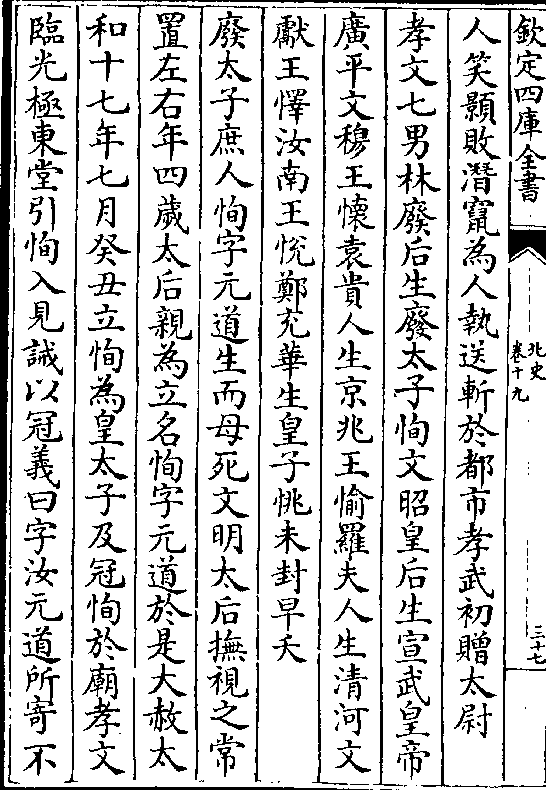 欽定四庫全書
北史
卷十九
三十七
人笑顥敗潛竄為人執送斬於都市孝武初贈太尉
孝文七男林廢后生廢太子恂文昭皇后生宣武皇帝
廣平文穆王懷袁貴人生京兆王愉羅夫人生清河文
獻王懌汝南王悅鄭充華生皇子恌未封早夭
廢太子庶人恂字元道生而母死文明太后撫視之常
置左右年四歲太后親為立名恂字元道於是大赦太
和十七年七月癸丑立恂為皇太子及冠恂於廟孝文
臨光極東堂引恂入見誡以冠義曰字汝元道所寄不